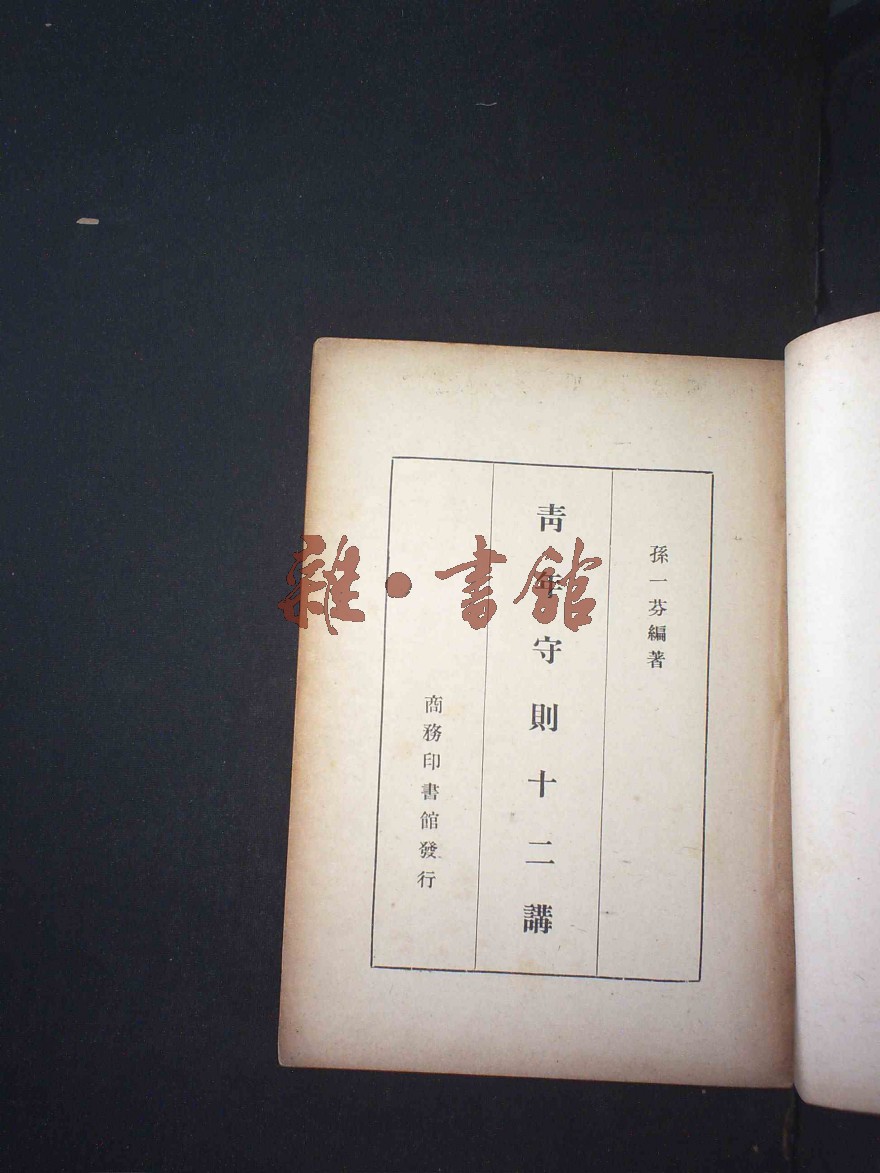 孫一芬編著
靑年守則十二講
商務印書館發行
雜·書館